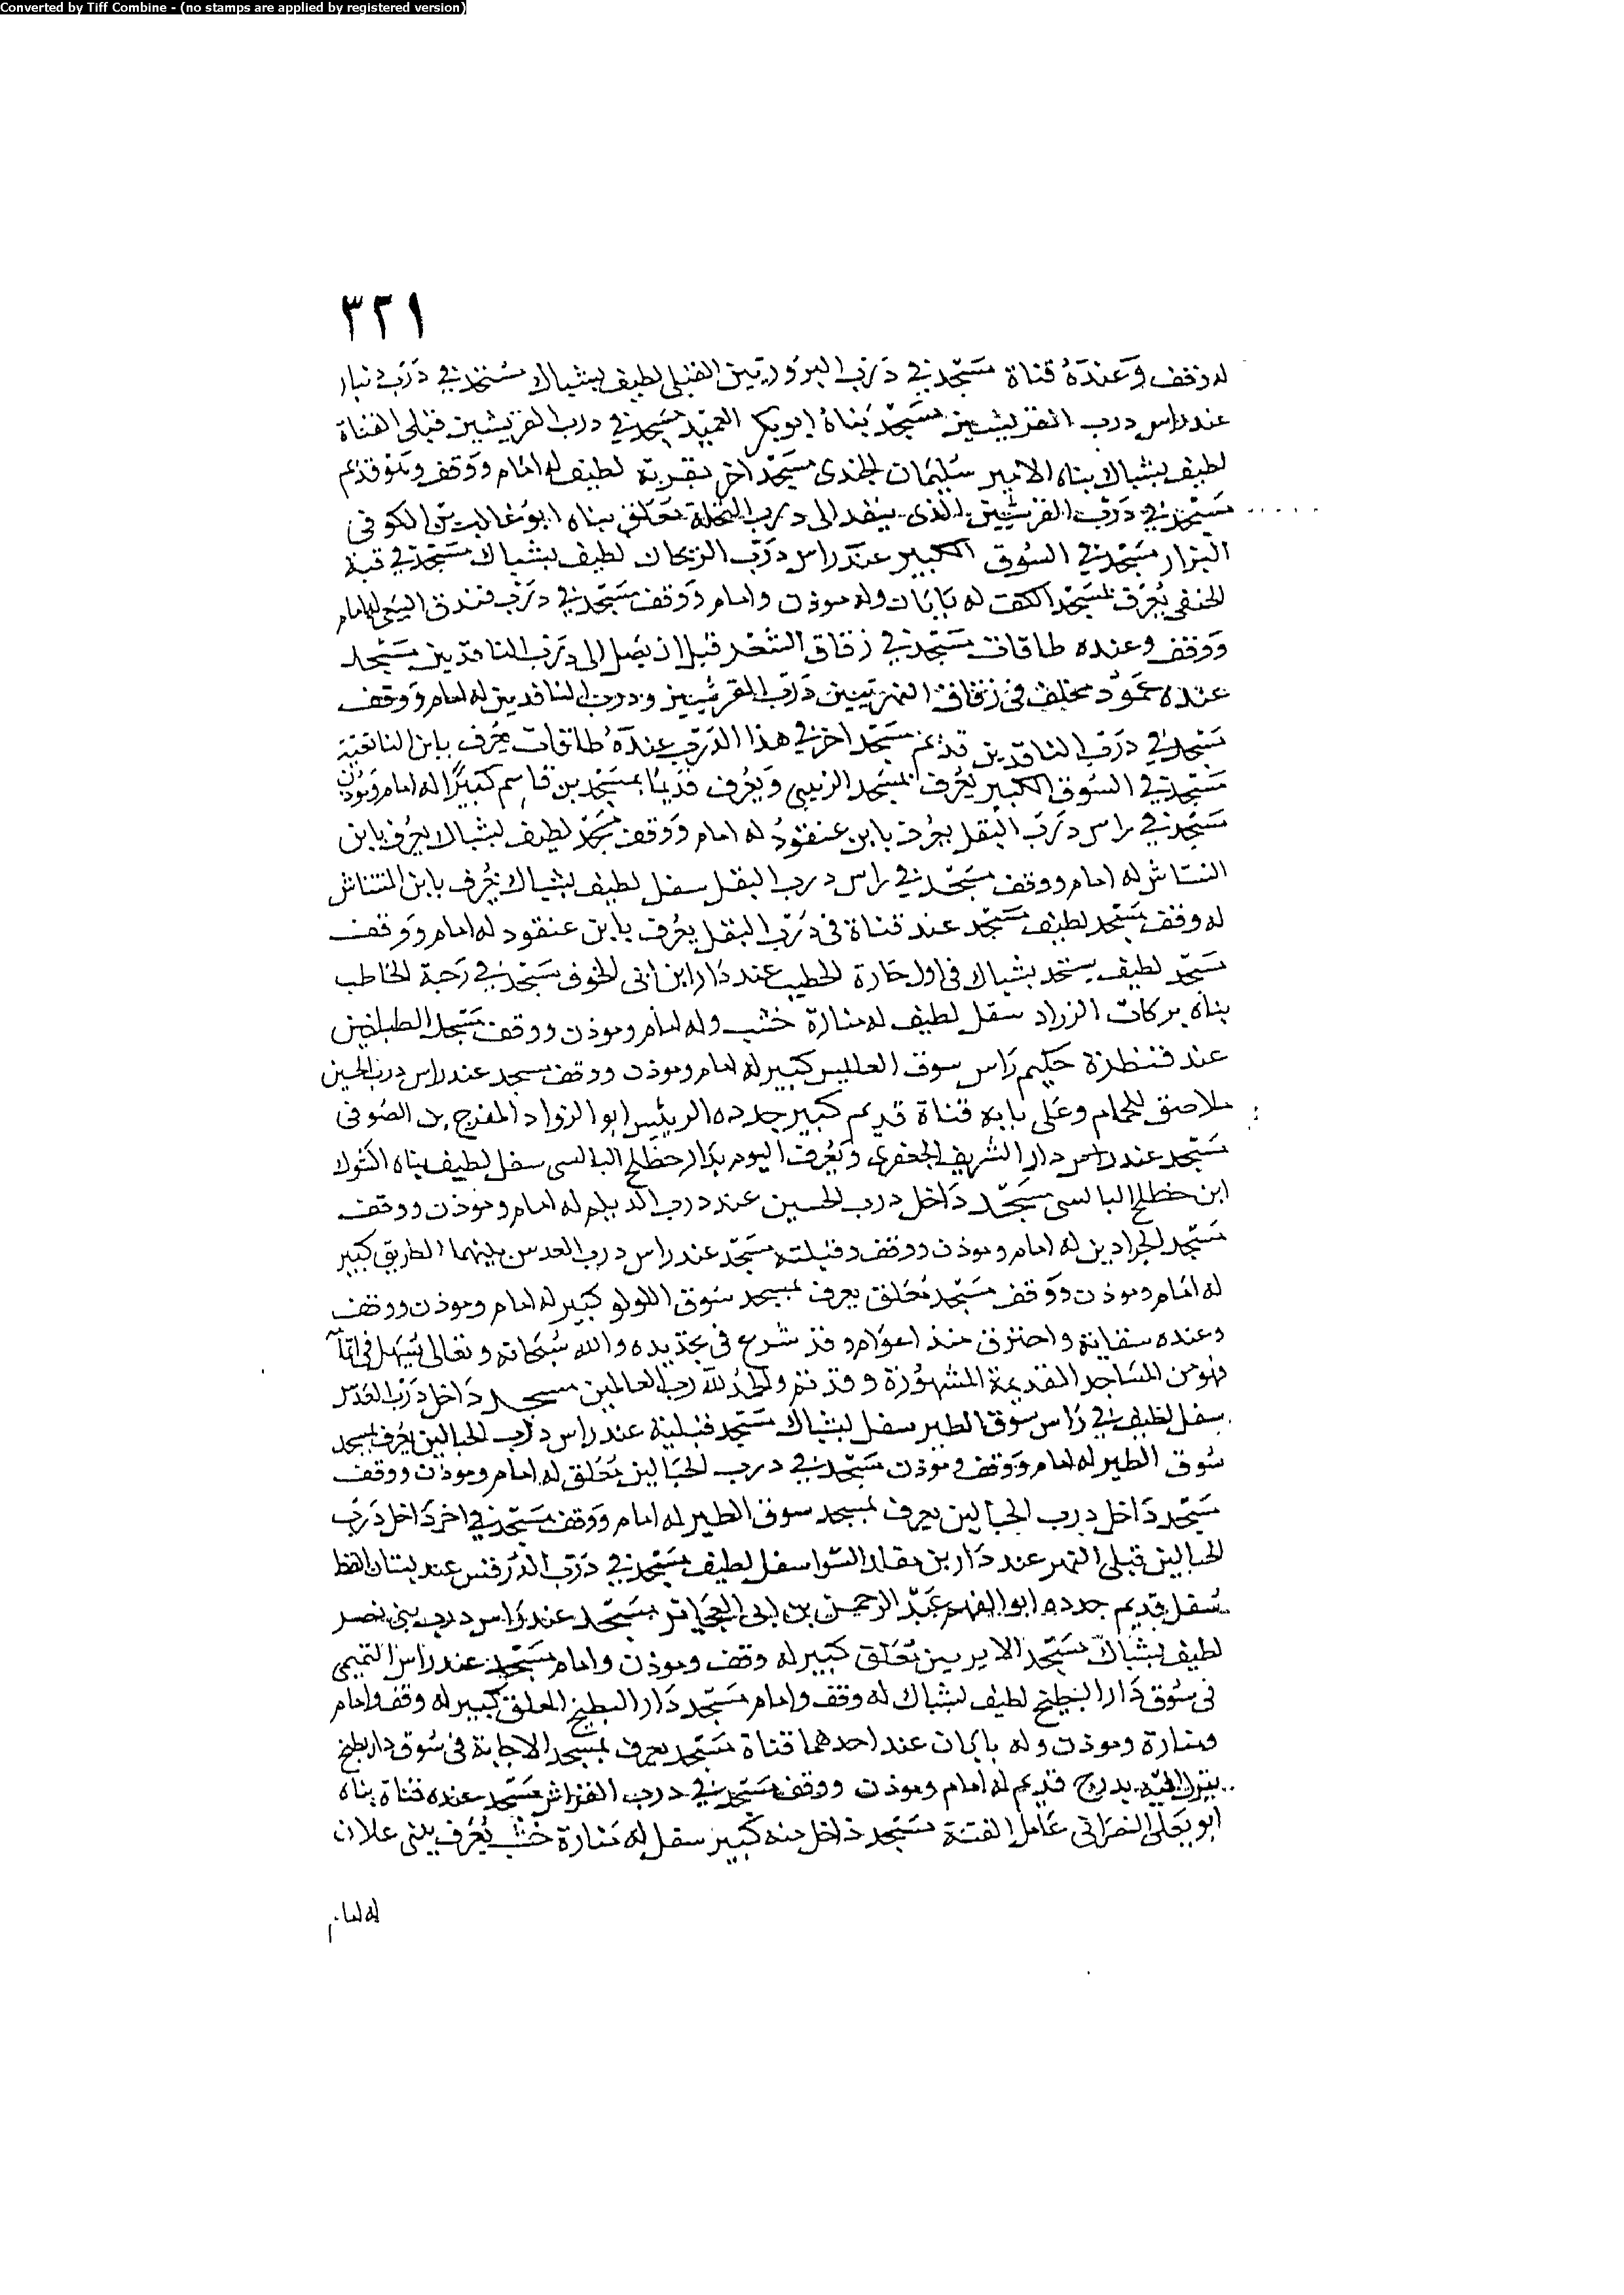 Converted by Tiff Combine - (no stamps are applied by registered version)
٣٢١
له وقف وعنده قناة مسجد في درب البزوريين القبلي لطيف بشباك مسجد في درب
عند راس درب القرشيين مسجد بناه ابو بكر العميد مسجد في درب القرشيين قبلي القناة
لطيف بشباك بناه الامير سليمان الجندي مسجد اخر بقربه لطيف له امام ووقف وهو قديم
مسجد في درب القرشيين الذي ينفد الى درب النخلة معلق بناه ابو غالب بن الكوفي
البزار مسجد في السوق الكبير عند راس درب الريحان لطيف بشباك مسجد في قبة
الحنفي يعرف بمسجد الكف له بابان وله موذن وامام ووقف مسجد في درب فندق له امام
ووقف وعنده طاقات مسجد في زقاق الشعر قبل ان يصل الى درب الناقديين مسجد
عنده عمود مخلف في زقاق بين درب القرشيين ودرب الناقديين له امام ووقف
مسجد في درب الناقديين قديم مسجد اخر في هذا الدرب عنده طاقات يعرف بابن
مسجد في السوق الكبير يعرف بمسجد الزينبي ويعرف قديما بمسجد بن قاسم كبير له امام وموذن
مسجد في راس درب البقل يعرف بابن عنقود له امام ووقف مسجد لطيف بشباك يعرف بابن
له امام ووقف مسجد في راس درب البقل سفل لطيف بشباك يعرف بابن
له وقف مسجد لطيف مسجد عند قناة في درب البقل يعرف بابن عنقود له امام ووقف
مسجد لطيف بشباك في اول حارة الخطيب عند دار ابن ابي الخوف مسجد في رحبة الخاطب
بناه بركات الزراد سفل لطيف له منارة خشب وله امام وموذن ووقف مسجد
عند قنطرة حكيم راس سوق كبير له امام وموذن ووقف مسجد عند راس درب الحسين
ملاصق للحمام وعلى بابه قناة قديم كبير جدده الرييس ابو الزواد المفرج بن الصوفي
مسجد عند راس دار الشريف الجعفري ويعرف اليوم بدار خطلخ البالسي سفل لطيف بناه
ابن خطلخ البالسي مسجد داخل درب الحسين عند درب الديلم له امام وموذن ووقف
مسجد الجرادين له امام وموذن ووقف وقبلته مسجد عند راس درب العدس بينهما الطريق كبير
له امام وموذن ووقف مسجد معلق يعرف بمسجد سوق اللولو كبير له امام وموذن ووقف
وعنده سقاية واحترق منذ اعوام وقد شرع في تجديده والله سبحانه وتعالى يسهل في
فهو من المساجد القديمة المشهورة وقد تم والحمد لله رب العالمين مسجد داخل درب العدس
سفل لطيف في راس سوق الطير سفل بشباك مسجد قبلية عند راس درب الحبالين يعرف بمسجد
سوق الطير له امام ووقف وموذن مسجد في درب الحبالين معلق له امام وموذن ووقف
مسجد داخل درب الحبالين يعرف بمسجد سوق الطير له امام ووقف مسجد في اخر داخل درب
الحبالين قبلي النهر عند دار بن مقلد سفل لطيف مسجد في درب الدرفس عند بستان القط
سفل قديم جدده ابو الفهم عبد الرحمن بن ابي العجائز مسجد عند راس درب بني نصر
لطيف بشباك مسجد معلق كبير له وقف وموذن وامام مسجد عند راس التميمي
في سوق دار البطيخ لطيف بشباك له وقف وامام مسجد دار البطيخ المعلق كبير له وقف وامام
ومنارة وموذن وله بابان عند احدهما قناة مسجد يعرف بمسجد الاجابة في سوق دار بطيخ
ينزل اليه بدرج قديم له امام وموذن ووقف مسجد في درب الفراش مسجد عنده قناة بناه
ابو يعلى النصراني عامل مسجد داخل منه كبير سفل له منارة خشب يعرف ببني علان
له امام